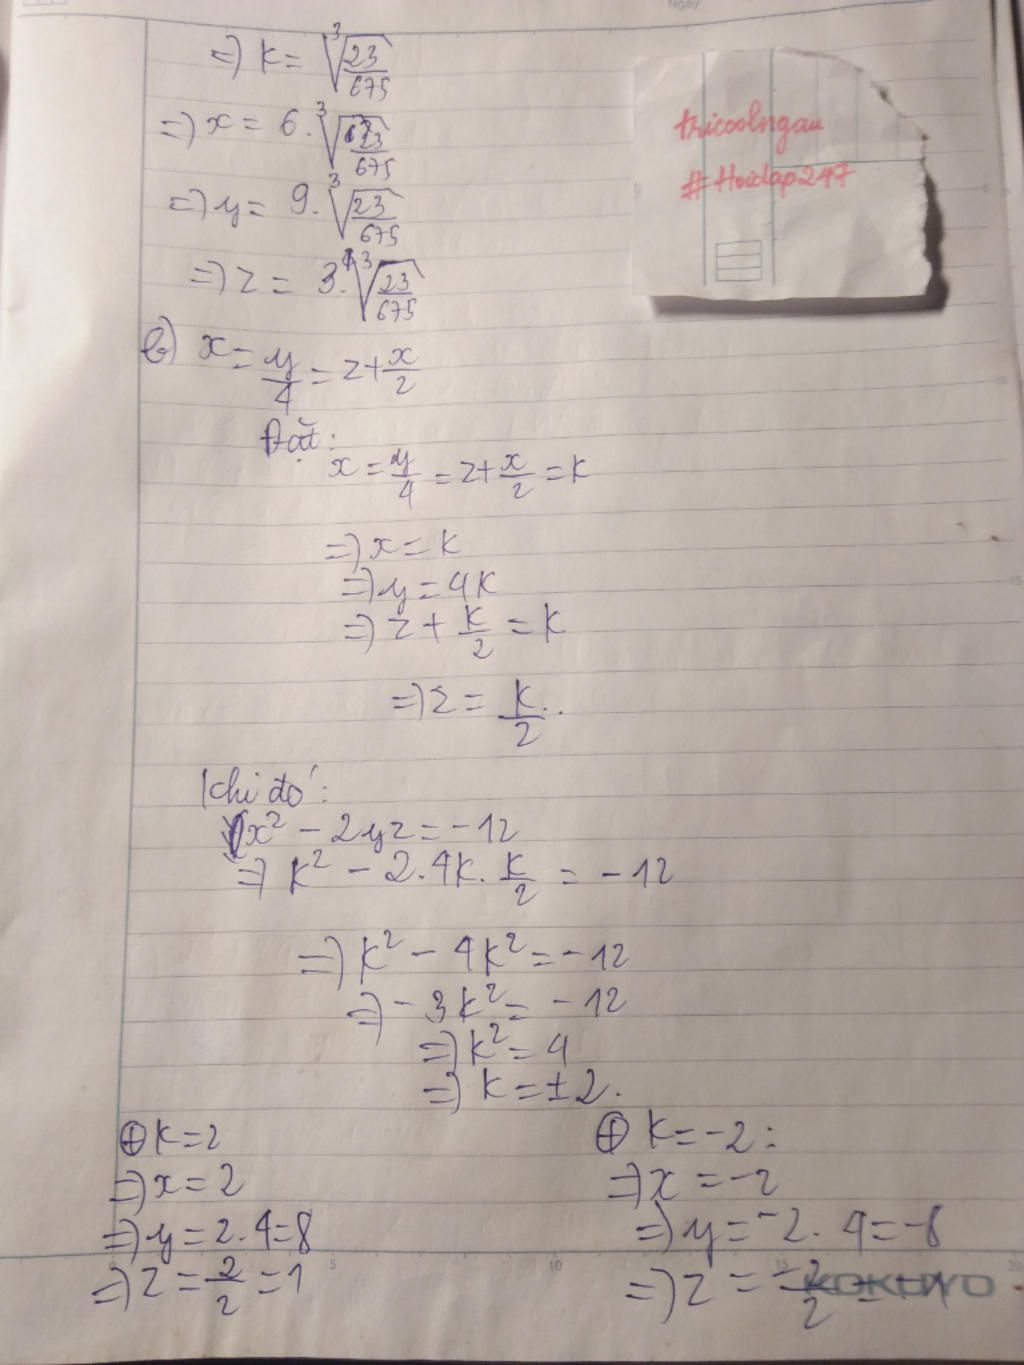 Ngày
=> k = ∛(23/675)
=> x = 6. ∛(23/675)
=> y = 9. ∛(23/675)
=> z = 3. ∛(23/675)
tricoolngau
#Hoidap247
b) x = y/4 = z + x/2
Đặt:
x = y/4 = z + x/2 = k
=> x = k
=> y = 4k
=> z + k/2 = k
=> z = k/2.
Khi đó:
x² - 2yz = -12
=> k² - 2.4k. k/2 = -12
=> k² - 4k² = -12
=> -3k² = -12
=> k² = 4
=> k = ±2.
⊕ k = 2
=> x = 2
=> y = 2.4 = 8
=> z = 2/2 = 1
⊕ k = -2:
=> x = -2
=> y = -2. 4 = -8
=> z = -2/2 = -1
5 10 15 20
KOKUYO